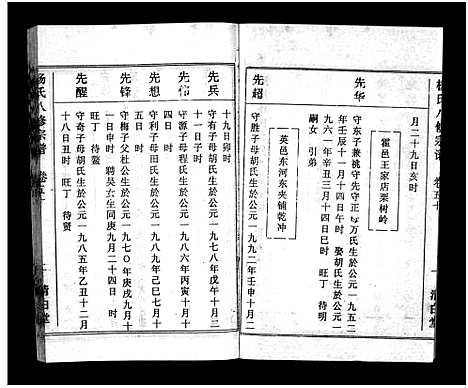 杨氏八修宗谱 卷五十
清白堂
月二十九日亥时
霍邑王家店栗树岭
先华
守东子兼桃守先守正女万氏生於公元一九五二
年壬辰十一月十四日午时 娶胡氏生於公元一
九六一年辛丑三月十四日巳时 旺丁 待明
嗣女 引弟
英邑东河东夹铺乾冲
先绍
守胜子母胡氏生於公元一九九二年壬申十月二
十九日卯时
先兵
守有子母胡氏生於公元一九七八年戊午十月二
十一日子时
先伟
守源子母程氏生於公元一九八六年丙寅十月十
四日时
先想
守利子母田氏生於公元一九九八年己巳七月十
五日时
先锋
守梅子父杜公生於公元一九七〇年庚戌九月十
一日申时 聘吴女生同庚九月二十四日 时
旺丁 待鳌
先醒
守奇子母胡氏生於公元一九八五年乙丑十二月
十八日丑时 旺丁 待贤
杨氏八修宗谱 卷五十
清白堂